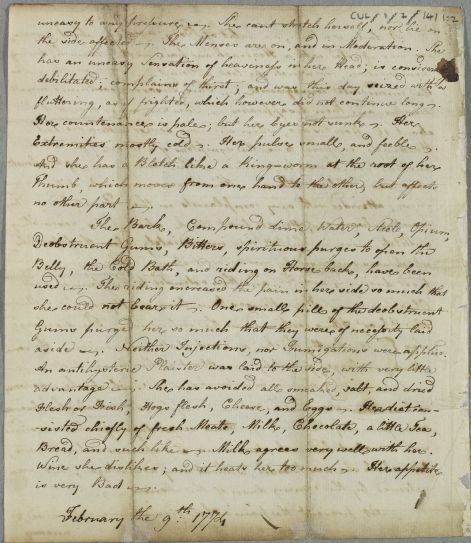 CUL/1/2/141 1:2
uneasy to any pressure. She cant stretch herself, nor lie on
the side affected. The Menses are on, and in Moderation. She
has an uneasy Sensation of heaviness in her Head; is considerably
debilitated; complains of thirst; and was this day seized with a
fluttering, as if frighted, which however did not continue long.
Her countenance is pale; but her Eyes not sunk. Her
Extremities mostly cold. Her pulse small, and feeble.
And she has a Blotch like a Ring-worm at the root of her
Thumb, which moves from one hand to the other, but affects
no other part
The Bark, Compound Lime Water, Steel, Opium,
Deobstruent Gums, Bitters, spirituous purges to open the
Belly, the Cold Bath, and riding on Horse back, have been
used. The riding encreased the pain in her side so much that
she could not bear it. One small pill of the deobstruent
Gums purged her so much that they were of necessity laid
aside. Neither Injections, nor Fumigations were applied.
An antihysteric Plaister was laid to the side, with very little
advantage. She has avoided all smoaked, salt, and dried
Flesh or Fish, Hogs flesh, Cheese, and Eggs. Her diet con-
sisted chiefly of fresh Meats, Milk, Chocolate, a little Tea,
Bread, and such like. Milk agrees very well with her.
Wine she dislikes; and it heats her too much. Her appetite
is very Bad.
February the 9th 1774